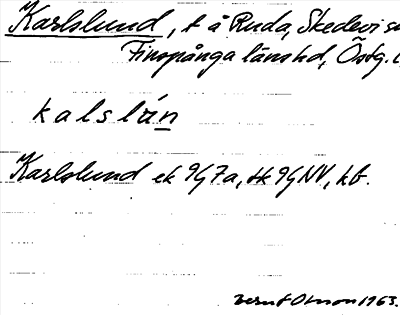 Karlslund, t å Ruda, Skedevi s
Finspånga länshd, Östg. l
kalslán
Karlslund ek 9G7a, sk 9GNV, hb.
Bernt Olsson 1963.